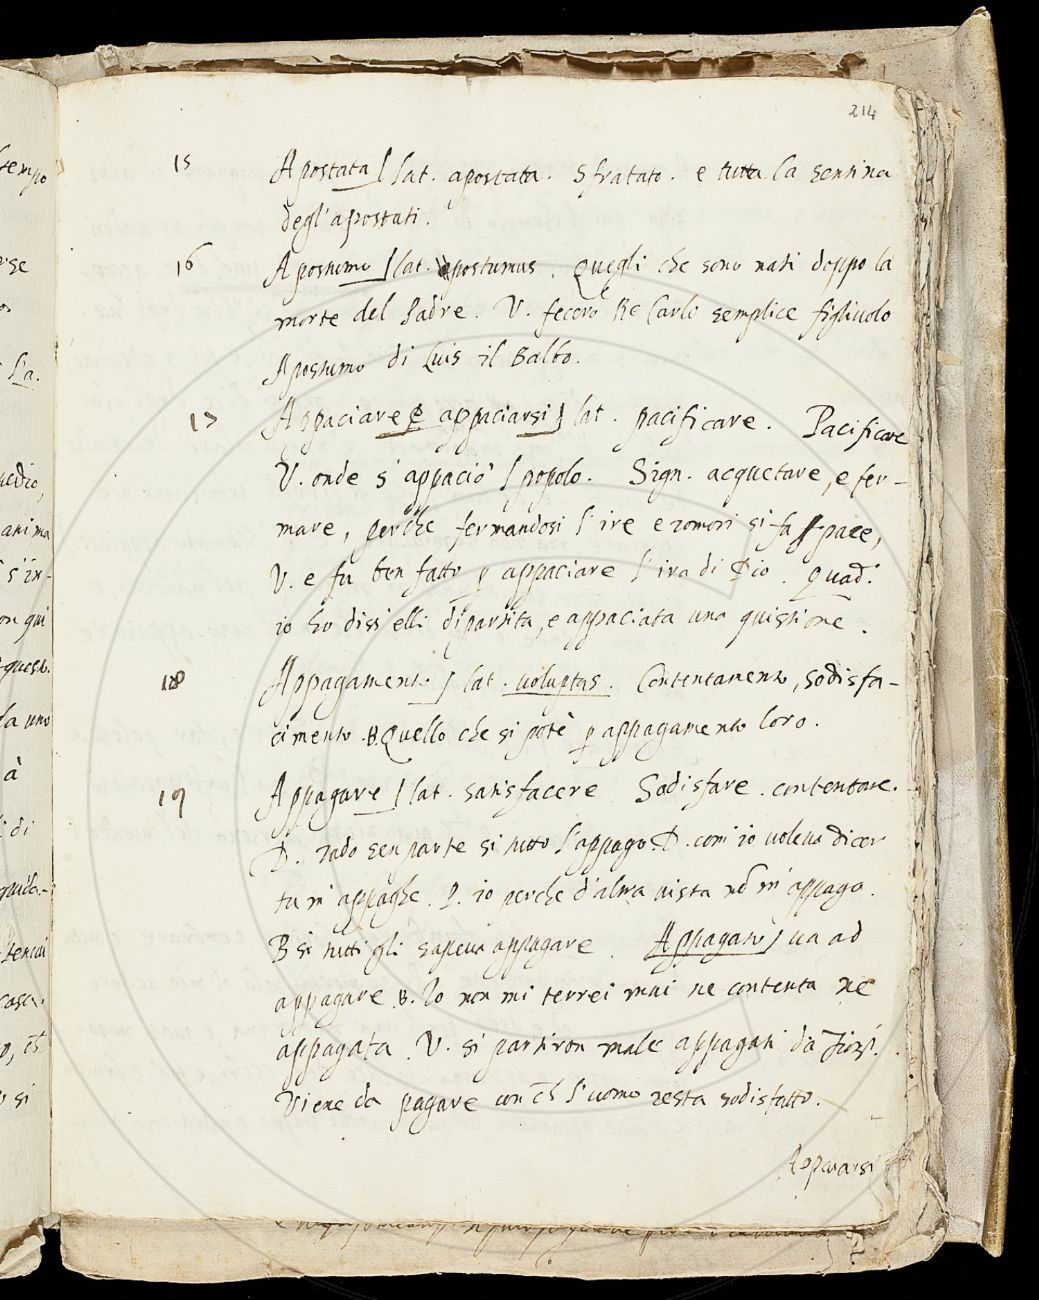 214
15 Apostata ] lat. apostata. Sfratato. e tutta la sentina
degl'apostati.
16 Apostumo ] lat. postumus. Quegli che sono nati doppo la
morte del Padre. V. fecero Re Carlo semplice figliuolo
Apostumo di Luis il Balbo.
17 Appaciare e appaciarsi ] lat. pacificare. Pacificare
V. onde s'appaciò l popolo. Sign. acquetare, e fer-
mare, perche fermandosi l'ire e romori si fa pace,
V. e fu ben fatto p appaciare l'ira di Dio. Quad.
io ho dissi elli dipartita, e appaciata una quistione.
18 Appagamento ] lat. voluptas. Contentamento, sodisfa-
cimento. B. Quello che si potè p appagamento loro.
19 Appagare ] lat. satisfacere Sodisfare. contentare.
D. rado sen parte si tutto l'appago. D. com' io voleva dicer
tu m'appaghe. P. io perche d'altra vista nō m'appago.
B si tutti gli sapeva appagare. Appagato ] va ad
appagare B. Io non mi terrei mai ne contenta ne
appagata. V. si partiron male appagati da
Viene da pagare con ch l'uomo resta sodisfatto.
tempo
la.
anima
on qui
la uno
à
di
si